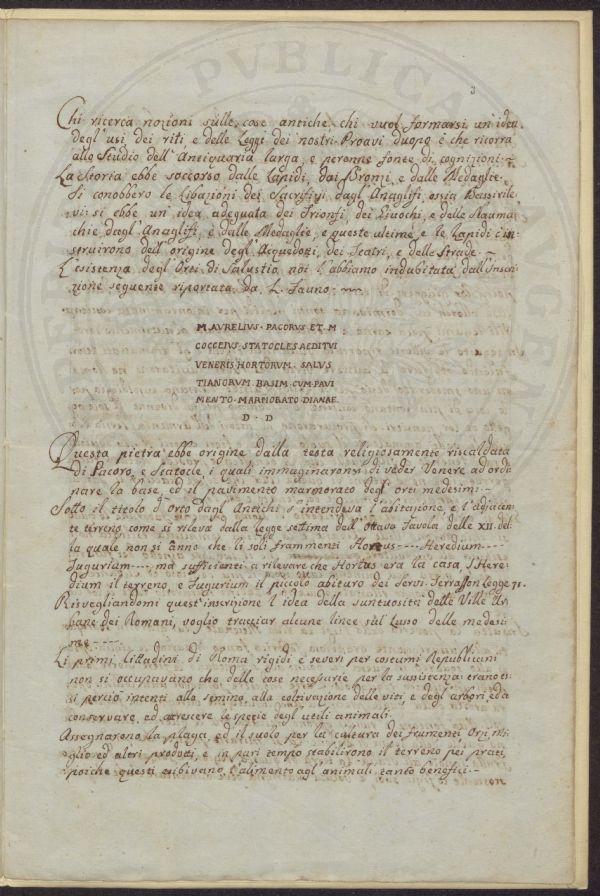 3
Chi ricerca nozioni sulle cose antiche chi vuol formarsi un'idea
degl'usi dei riti e delle Leggi dei nostri Proavi duopo è che ricorra
allo Studio dell'Antiquaria larga, e perenne fonte di cognizioni. -
La Storia ebbe soccorso dalle Lapidi, dai Bronzi, e dalle Medaglie.
Si conobbero le Libazioni dei Sacrifizi dagl'Anaglifi, ossia Bassirilie
vi: si ebbe un idea adequata dei Trionfi, dei Giuochi, e delle Nauma
chie dagl'Anaglifi, e dalle Medaglie, e queste ultime e le Lapidi c'in
struirono dell'origine degl'Acquedotti, dei Teatri, e delle Strade. -
L'esistenza degl'Orti di Salustio noi l'abbiamo indubitata dall'Inscri
zione seguente riportata da L. Fauno
M. AVRELIVS · PACORVS · ET · M
COCCEIVS · STATOCLES AEDITVI
VENERIS HORTORVM · SALVS
TIANORVM · BASIM · CVM · PAVI
MENTO · MARMORATO DIANAE
D · D
Questa pietra ebbe origine dalla testa religiosamente riscaldata
di Pacoro, e Statocle, i quali immaginaronsi di veder Venere ad ordi
nare la base, ed il pavimento marmorato degl'orti medesimi. -
Sotto il titolo d'orto dagl'Antichi s'intendeva l'abitazione, e l'adjacen
te terreno come si rileva dalla legge settima dell'ottava Tavola delle XII. del
la quale non si ànno che li soli frammenti Hortus ---- Heredium ----
Tugurium ---- ma sufficienti a rilevare che Hortus era la casa, Here
dium il terreno, e Tugurium il piccolo abituro dei Servi. Terasson Legge 71.
Risvegliandomi quest'inscrizione l'idea della suntuosità delle Ville Ur
bane dei Romani, voglio tracciar alcune linee sul Lusso delle medesi
me ----
Li primi Cittadini di Roma rigidi e severi per costumi Republicani
non si occupavano che delle cose necessarie per la sussistenza: erano es
si perciò intenti alla semina alla coltivazione delle viti, e degl'arbori, ed a
conservare, ed accrescere le spezie degl'utili animali.
Assegnarono la plaga, ed il suolo per la cultura dei frumenti Orzi mi
glio ed altri prodotti, e in pari tempo stabilirono il terreno pei prati,
poiche questi esibivano l'alimento agl'animali tanto benefici. -